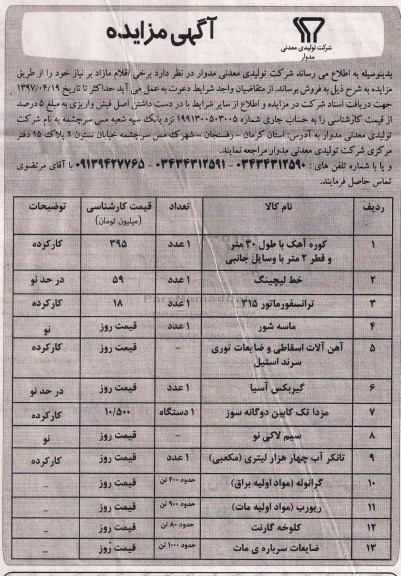 آگهی مزایده
شرکت تولیدی معدنی
مدوار
بدینوسیله به اطلاع می رساند شرکت تولیدی معدنی مدوار در نظر دارد برخی اقلام مازاد بر نیاز خود را از طریق
مزایده به شرح ذیل به فروش برساند. از متقاضیان واجد شرایط دعوت به عمل می آید حداکثر تا تاریخ ۱۳۹۷/۰۴/۱۹
جهت دریافت اسناد شرکت در مزایده و اطلاع از سایر شرایط با در دست داشتن اصل فیش واریزی به مبلغ ۵ درصد
از قیمت کارشناسی را به حساب جاری شماره ۱۹۹۱۳۰۰۵۰۳۰۰۵ نزد بانک سپه شعبه مس سرچشمه به نام شرکت
تولیدی معدنی مدوار به آدرس: استان کرمان - رفسنجان - شهرک مس سرچشمه خیابان نسترن ۲ پلاک ۱۵ دفتر
مرکزی شرکت تولیدی معدنی مدوار مراجعه نمایند.
و یا با شماره تلفن های : ۰۳۴۳۴۳۱۲۵۹۰ - ۰۳۴۳۴۳۱۲۵۹۱ - ۰۹۱۳۹۴۲۷۷۶۵ با آقای مرتضوی
تماس حاصل فرمایند.
ردیف نام کالا تعداد قیمت کارشناسی (میلیون تومان) توضیحات
۱ کوره آهک با طول ۳۰ متر و قطر ۲ متر با وسایل جانبی ۱ عدد ۳۹۵ کارکرده
۲ خط لیچینگ ۱ عدد ۵۹ در حد نو
۳ ترانسفورماتور ۳۱۵ ۱ عدد ۱۸ کارکرده
۴ ماسه شور ۱ عدد قیمت روز نو
۵ آهن آلات اسقاطی و ضایعات توری سرند استیل - قیمت روز کارکرده
۶ گیربکس آسیا ۱ عدد قیمت روز در حد نو
۷ مزدا تک کابین دوگانه سوز ۱ دستگاه ۱۰/۵۰۰ کارکرده
۸ سیم لاکی نو - قیمت روز نو
۹ تانکر آب چهار هزار لیتری (مکعبی) ۱ عدد قیمت روز کارکرده
۱۰ گرانوله (مواد اولیه براق) حدود ۴۰۰ تن قیمت روز -
۱۱ ریورب (مواد اولیه مات) حدود ۹۰۰ تن قیمت روز -
۱۲ کلوخه گارنت حدود ۸۰ تن قیمت روز -
۱۳ ضایعات سرباره ی مات حدود ۱۰۰۰ تن قیمت روز -